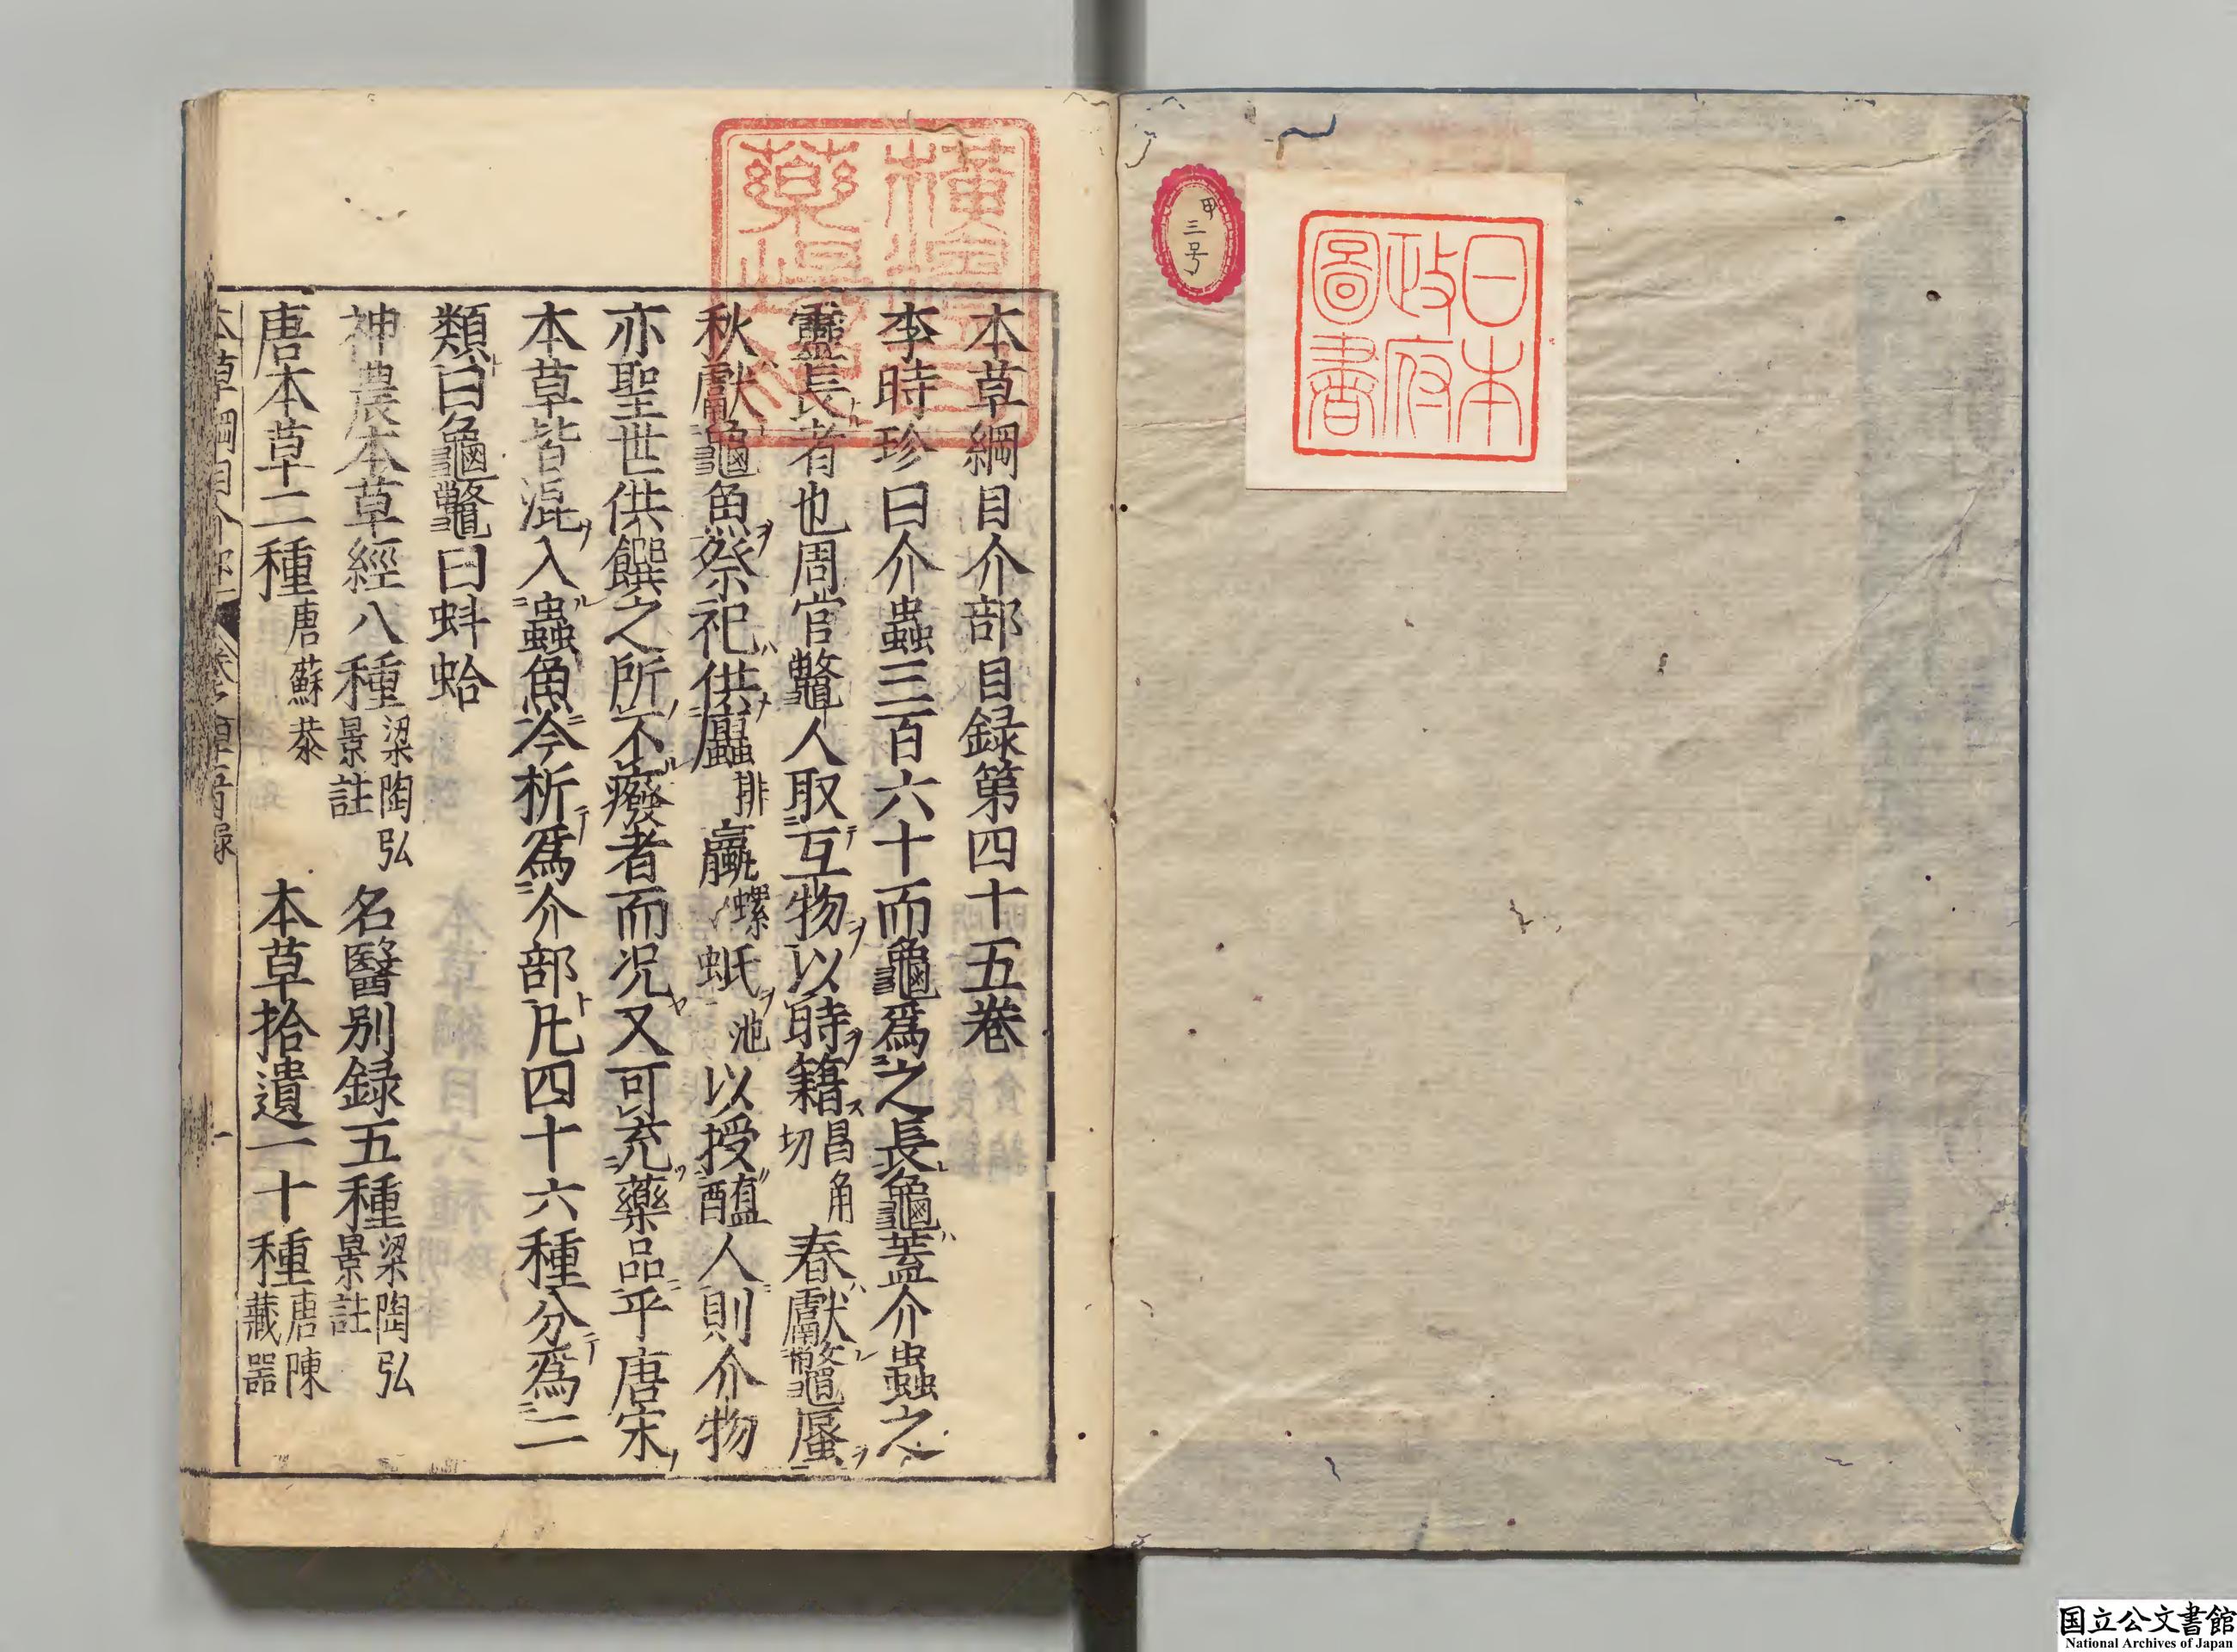 日本
政府
圖書
甲
三
号
本草綱目介部目録第四十五巻
李時珍曰介蟲三百六十而龜爲之長龜蓋介蟲之
靈長者也周官鼈人取互物以時籍昌角切春獻鼈蜃
秋獻龜魚祭祀供蠯排蠃螺蚳池以授醢人則介物
亦聖世供饌之所不癈者而况又可充藥品乎唐宋
本草皆混入蟲魚今析爲介部凡四十六種分爲二
類曰龜鼈曰蚌蛤
神農本草經八種梁陶弘景註 名醫别録五種梁陶弘景註
唐本草二種唐蘇恭 本草拾遺一十種唐陳藏器
国立公文書館
National Archives of Japan